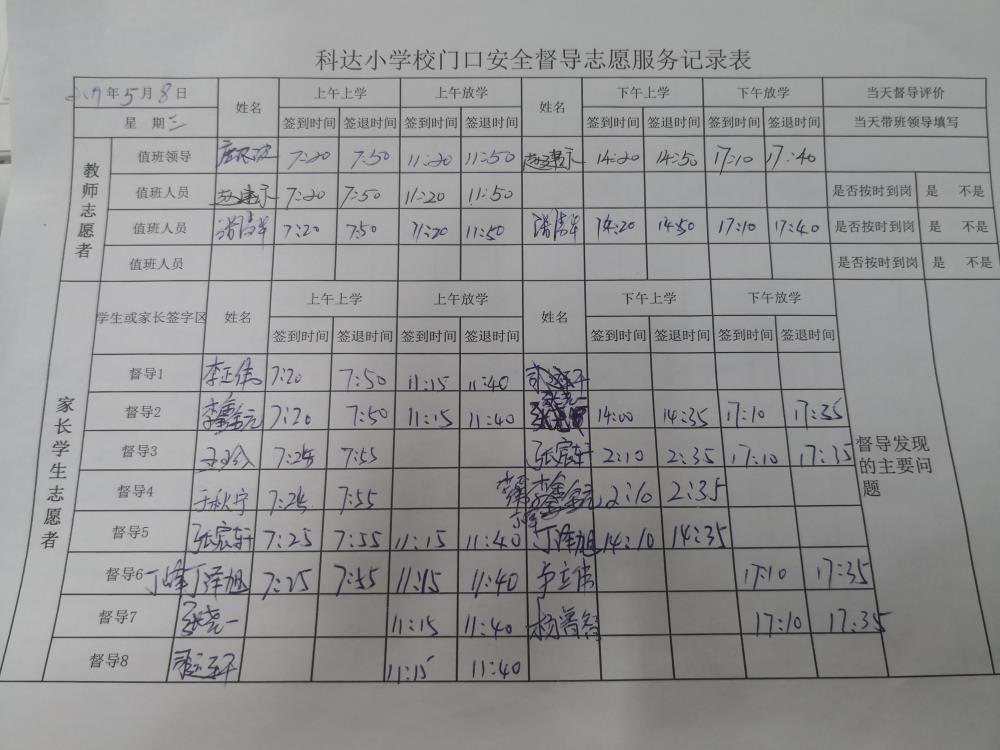 科达小学校门口安全督导志愿服务记录表
年5月8日 姓名 上午上学 上午放学 姓名 下午上学 下午放学 当天督导评价
星 期三 签到时间 签退时间 签到时间 签退时间 签到时间 签退时间 签到时间 签退时间 当天带班领导填写
教师志愿者
值班领导 7:20 7:50 11:20 11:50 14:20 14:50 17:10 17:40
值班人员 7:20 7:50 11:20 11:50 是否按时到岗 是 不是
值班人员 7:20 7:50 11:20 11:50 14:20 14:50 17:10 17:40 是否按时到岗 是 不是
值班人员 是否按时到岗 是 不是
家长学生志愿者
学生或家长签字区 姓名 上午上学 上午放学 姓名 下午上学 下午放学
签到时间 签退时间 签到时间 签退时间 签到时间 签退时间 签到时间 签退时间
督导1 李正伟 7:20 7:50 11:15 11:40
督导2 7:20 7:50 11:15 11:40 14:00 14:35 17:10 17:35
督导3 7:25 7:55 张宸轩 2:10 2:35 17:10 17:35
督导发现的主要问题
督导4 于秋宁 7:25 7:55 2:10 2:35
督导5 张宸轩 7:25 7:55 11:15 11:40 丁泽旭 14:10 14:35
督导6 丁峰丁泽旭 7:25 7:55 11:15 11:40 17:10 17:35
督导7 张尧一 11:15 11:40 17:10 17:35
督导8 11:15 11:40